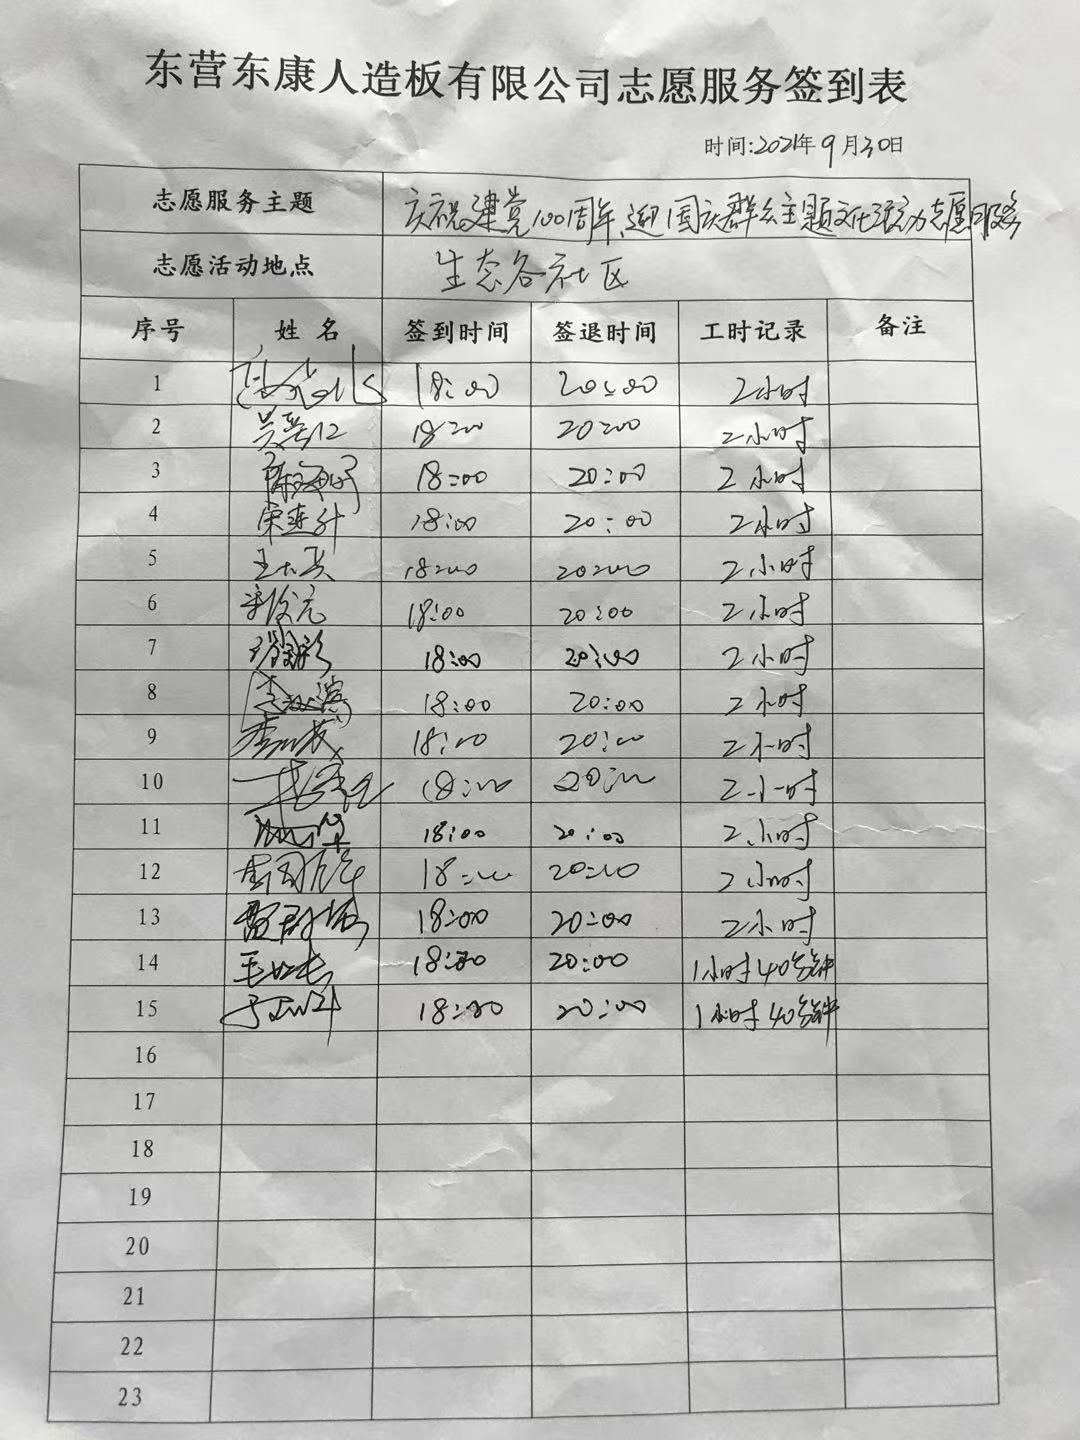 东营东康人造板有限公司志愿服务签到表
时间:2021年9月30日
志愿服务主题 庆祝建党100周年,迎国庆群众主题文化活动志愿服务
志愿活动地点 生态谷社区
序号 姓名 签到时间 签退时间 工时记录 备注
1 18:00 20:00 2小时
2 18:00 20:00 2小时
3 18:00 20:00 2小时
4 宋连升 18:00 20:00 2小时
5 18:00 20:00 2小时
6 18:00 20:00 2小时
7 18:00 20:00 2小时
8 18:00 20:00 2小时
9 18:00 20:00 2小时
10 18:00 20:00 2小时
11 18:00 20:00 2小时
12 18:00 20:00 2小时
13 18:00 20:00 2小时
14 20:00 1小时40分钟
15 20:00 1小时40分钟
16
17
18
19
20
21
22
23